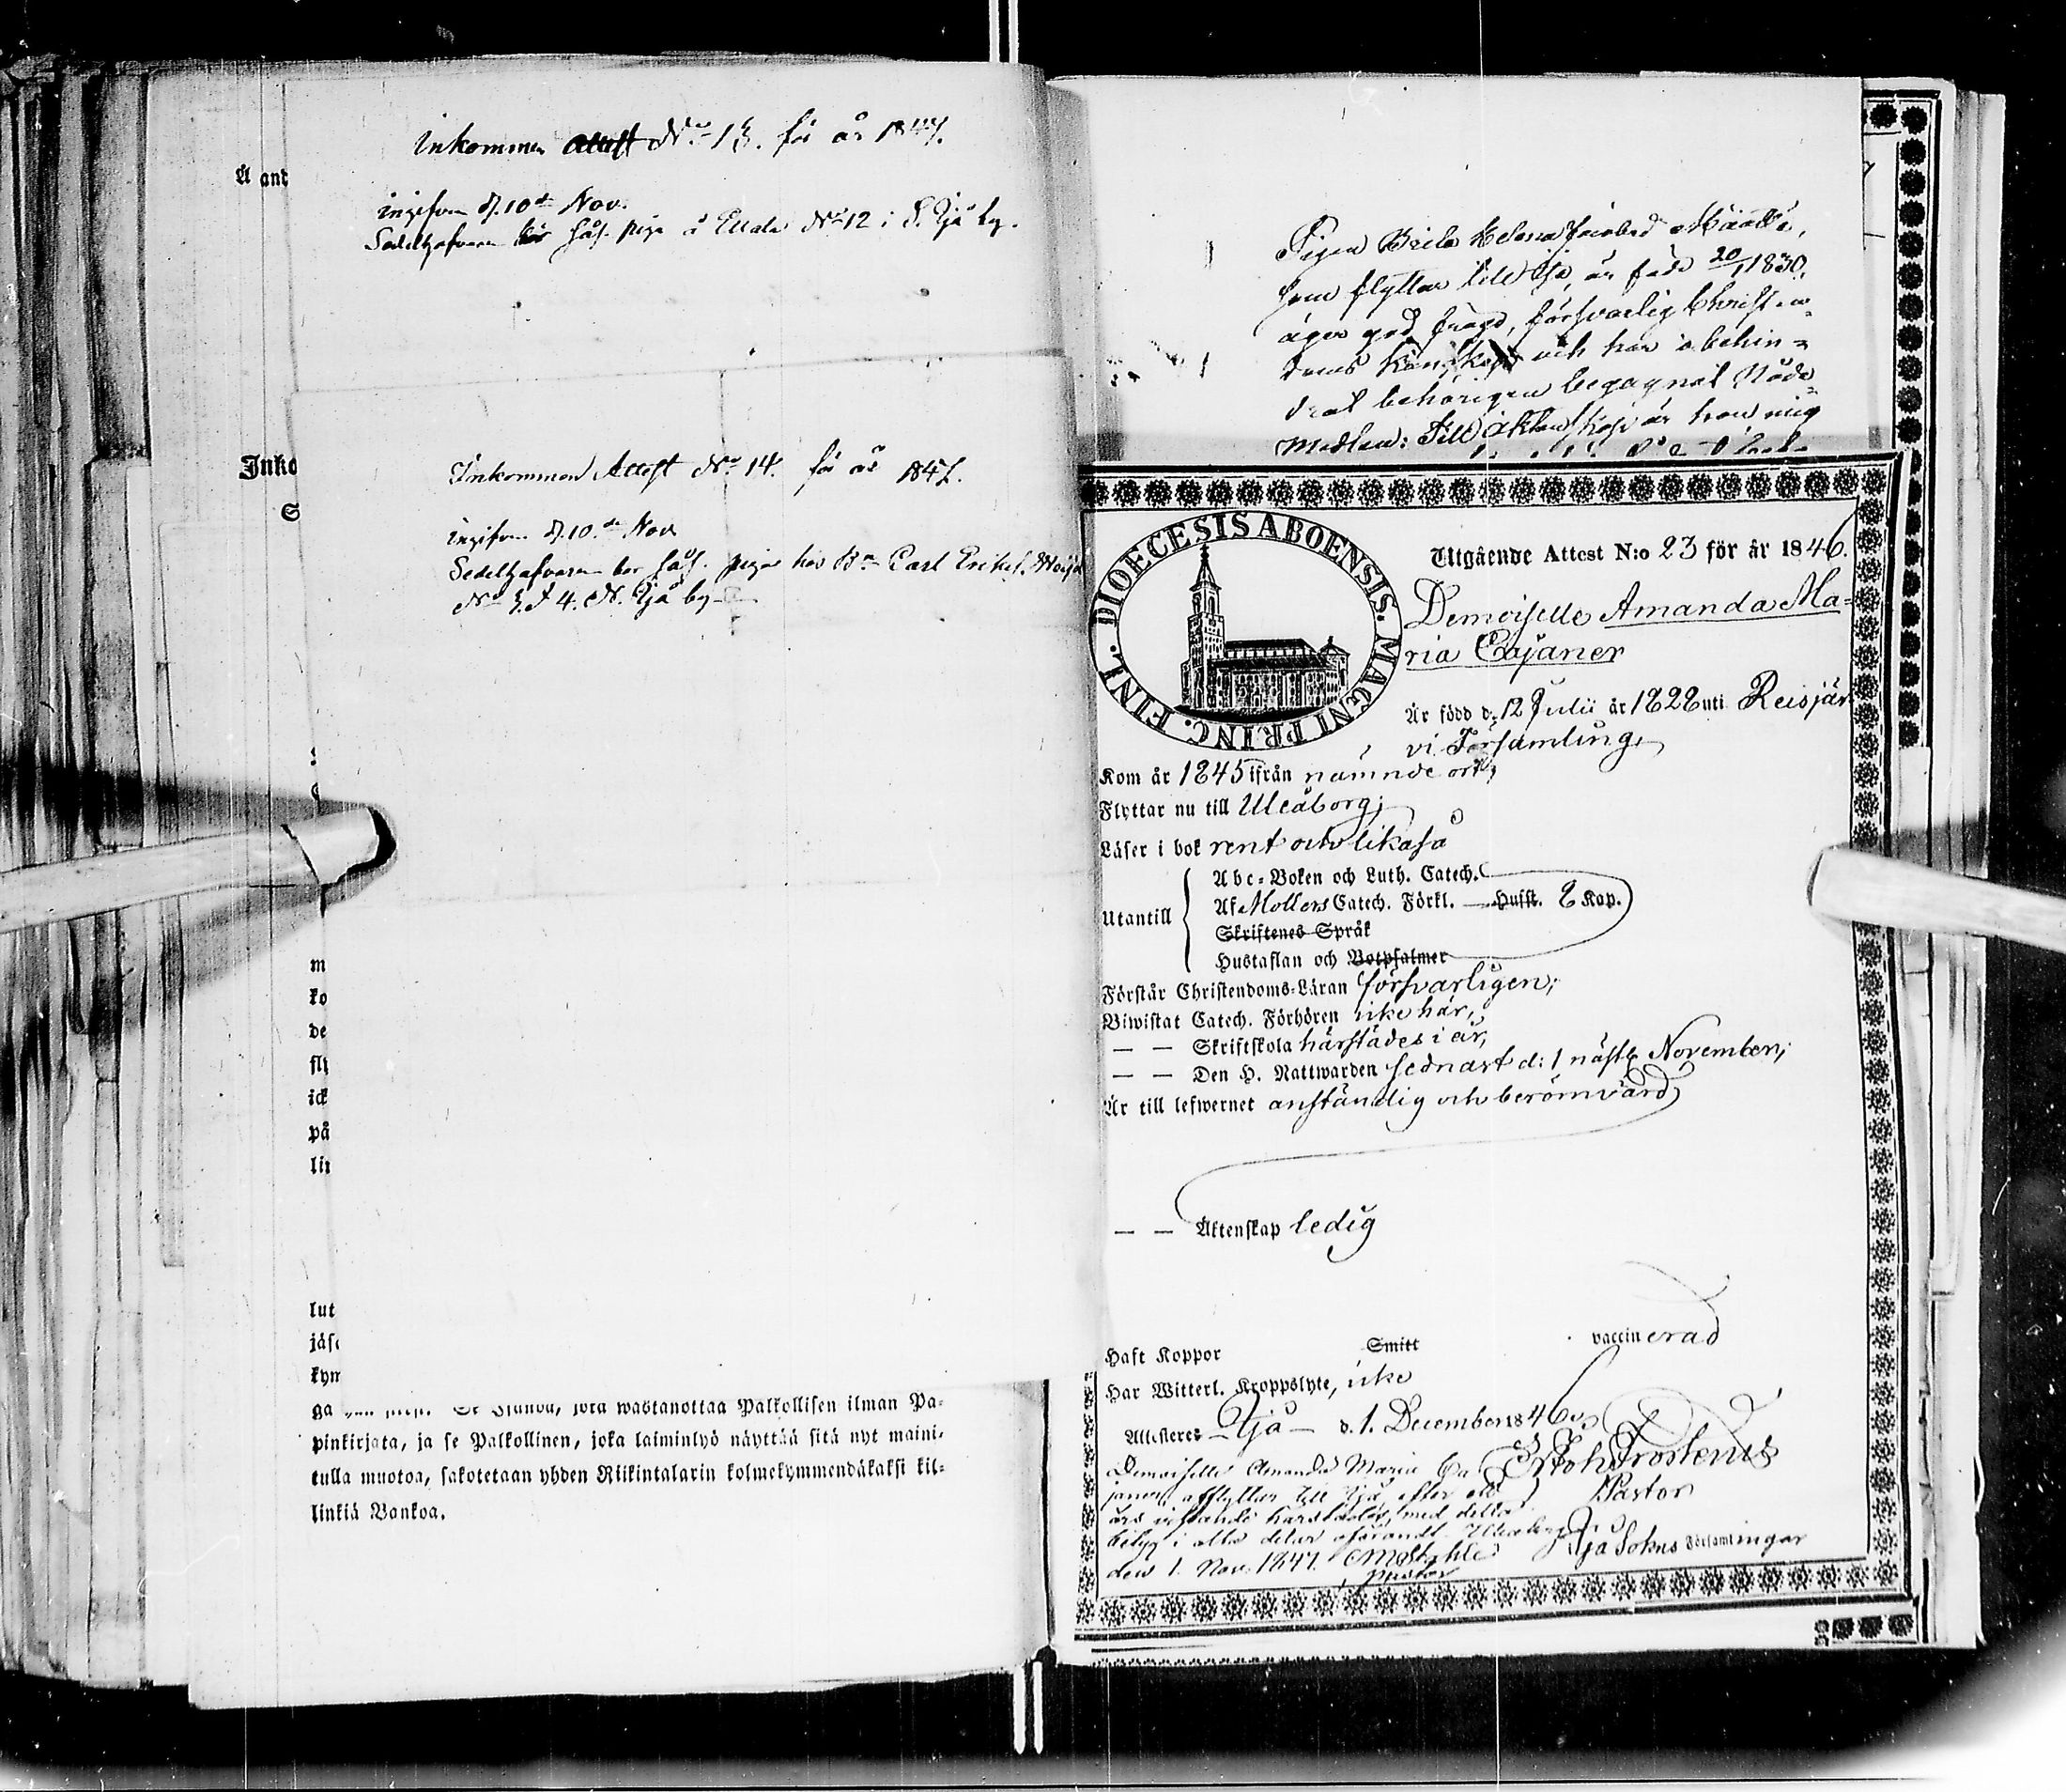 Inkommen Attest No 13. för år 1847.
ingifven d. 10de Nov.
Sedelhafvaren bor såsom piga å No 12 i S. Ijå by.
Inko
Inkommen Attest No 14. för år 1847.
ingifven d. 10de Nov
Sedelhafvaren bor sås. piga hos Bn Carl Eriks.
No 3 & 4. N. Ijå by
m
ko
de
fly
ick
på
lut
kym
pinkirjata, ja se Palkollinen, joka laiminlyö näyttää sitä nyt maini-
tulla muotoa, sakotetaan yhden Riikintalarin kolmekymmendäkaksi kil-
linkiä Bankoa.
Pigan Brita Helena Jacobsd
som flyttar till Ijo, är född 20/1 1830,
äger god frägd, försvarlig Christen-
doms kunskap och har obehin-
drat behörigen begagnat Nåde-
medlen: Till äktenskap är hon mig
DIOECESIS ABOENSIS. MAGNI PRINC. FINL.
Utgående Attest N:o 23 för år 1846.
Demoiselle Amanda Ma-
ria Cajaner
Är född d. 12 Julii år 1828 uti Reisjär
vi Församling,
Kom år 1845 ifrån nämnde ort,
Flyttar nu till Uleåborg;
Läser i bok rent och likaså
Abc-Boken och Luth. Catech.
Utantill Af Mollers Catech. Förkl. — Husst. 2 Kap.
Skriftenes Språk
Hustaflan och Botpsalmer
Förstår Christendoms-Läran försvarligen;
Biwistat Catech. Förhören icke här,
— — Skriftskola härstädes i år,
— — Den H. Nattwarden sednast d: 1 nästl. November;
Är till lefwernet anständig och berömvärd
— — Äktenskap ledig
Haft Koppor Smitt vaccinerad
Har Witterl. Kroppslyte, icke
Attesteres Ijå d. 1. December 1846
Joh Frosterus
Pastor
Ijå Sokns Församlingar
Demoiselle Amanda Maria Ca
janer, afflyttar till Ijå efter ett
års vistande härstädes, med detta
betyg i alla delar oförändt. Uleåborg
den 1. Nov. 1847.
Pastor